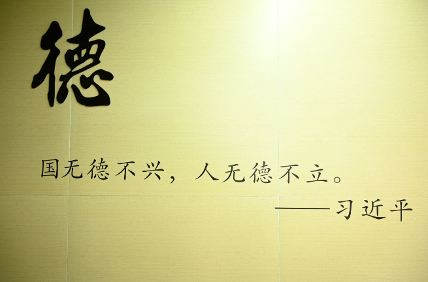 德
国无德不兴，人无德不立。
——习近平